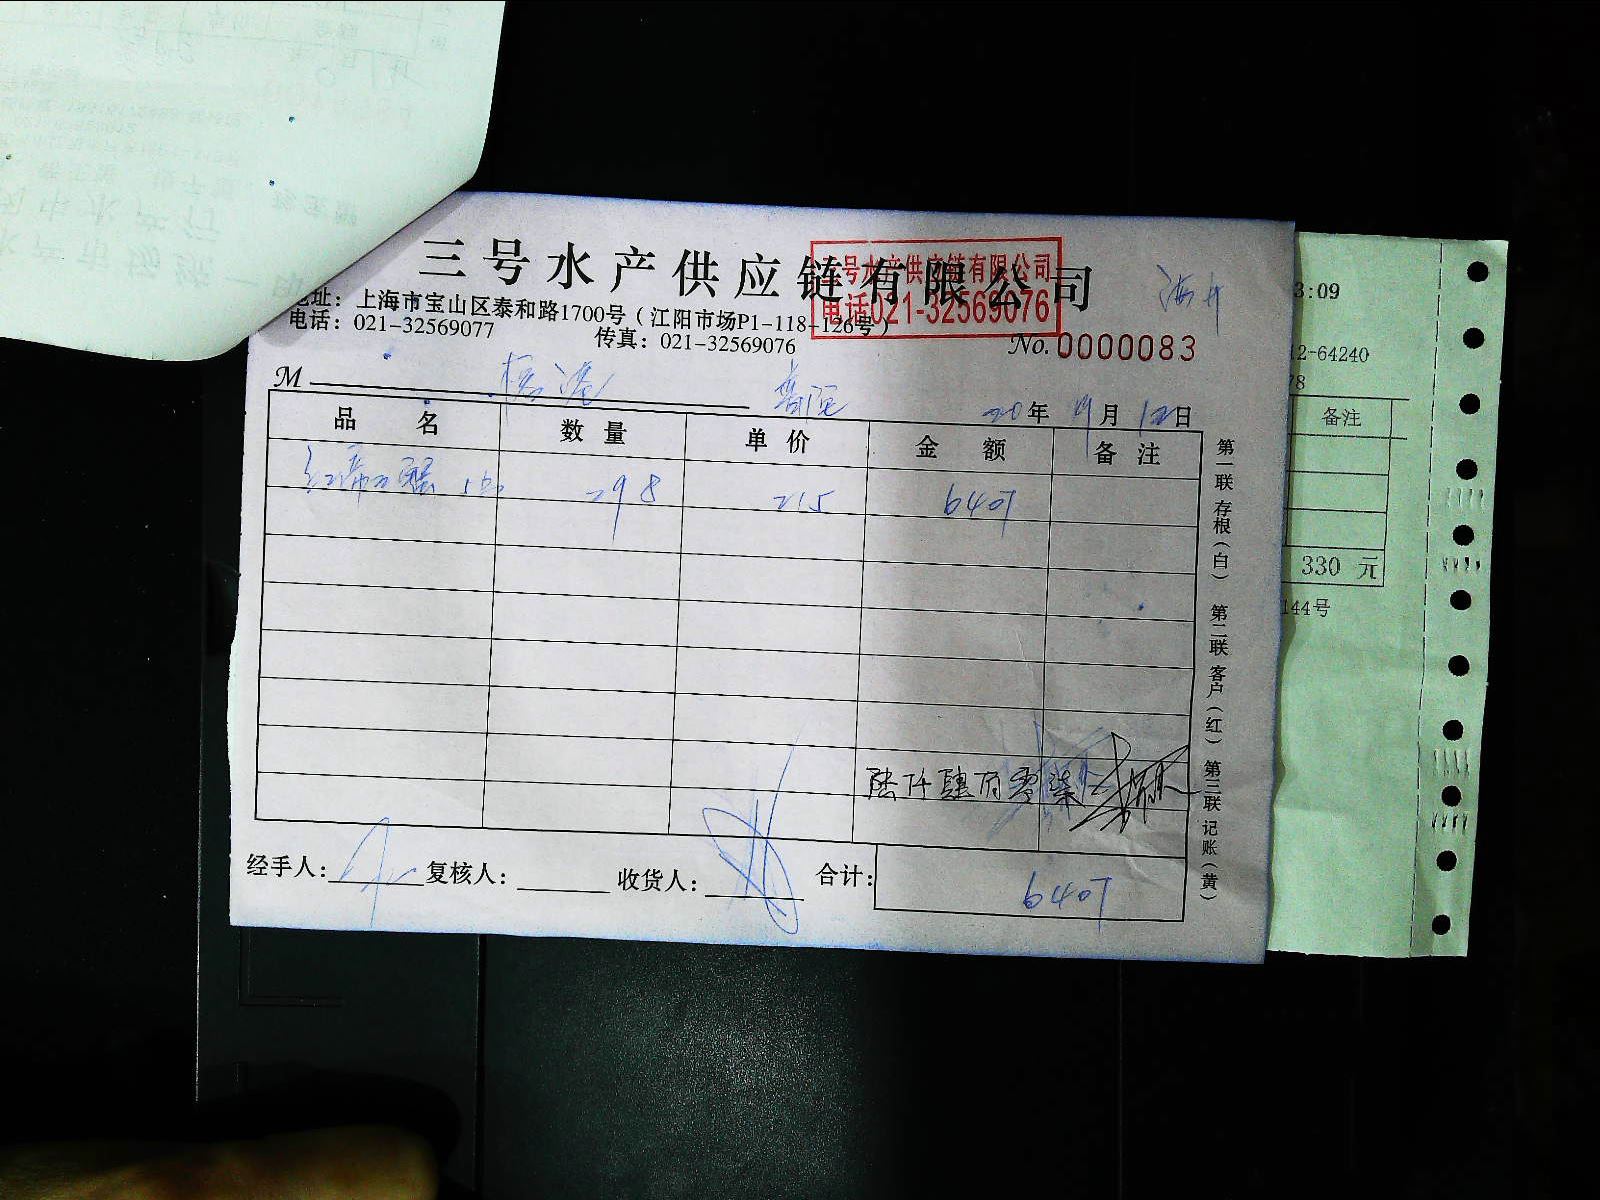 三号水产供应链有限公司
三号水产供应链有限公司
电话021-32569076
地址：上海市宝山区泰和路1700号（江阳市场P1-118-126号）
电话：021-32569077 传真：021-32569076
No. 0000083
M 20年 月12日
品名 数量 单价 金额 备注
298 215 6407
陆仟肆佰零柒
经手人： 复核人： 收货人： 合计： 6407
第一联 存根（白） 第二联 客户（红） 第三联 记账（黄）
3:09
12-64240
78
备注
330 元
144号